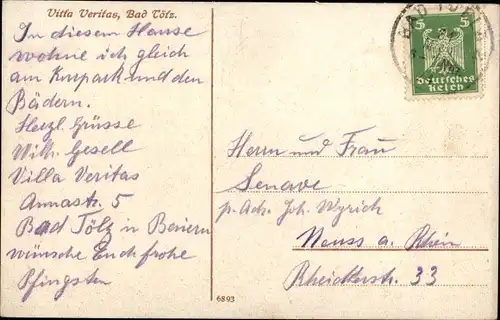 Villa Veritas, Bad Tölz.
In diesem Hause
wohne ich gleich
am Kurpark und den
Bädern.
Herzl. Grüsse
Wilh. Gesell
Villa Veritas
Annastr. 5
Bad Tölz in Baiern
wünsche Euch frohe
Pfingsten
6893
BAD TÖLZ
5 5
Deutsches
Reich
Herrn und Frau
Senave
p. Adr. Joh. Wyrich
Neuss a. Rhein
Rheidterstr. 33